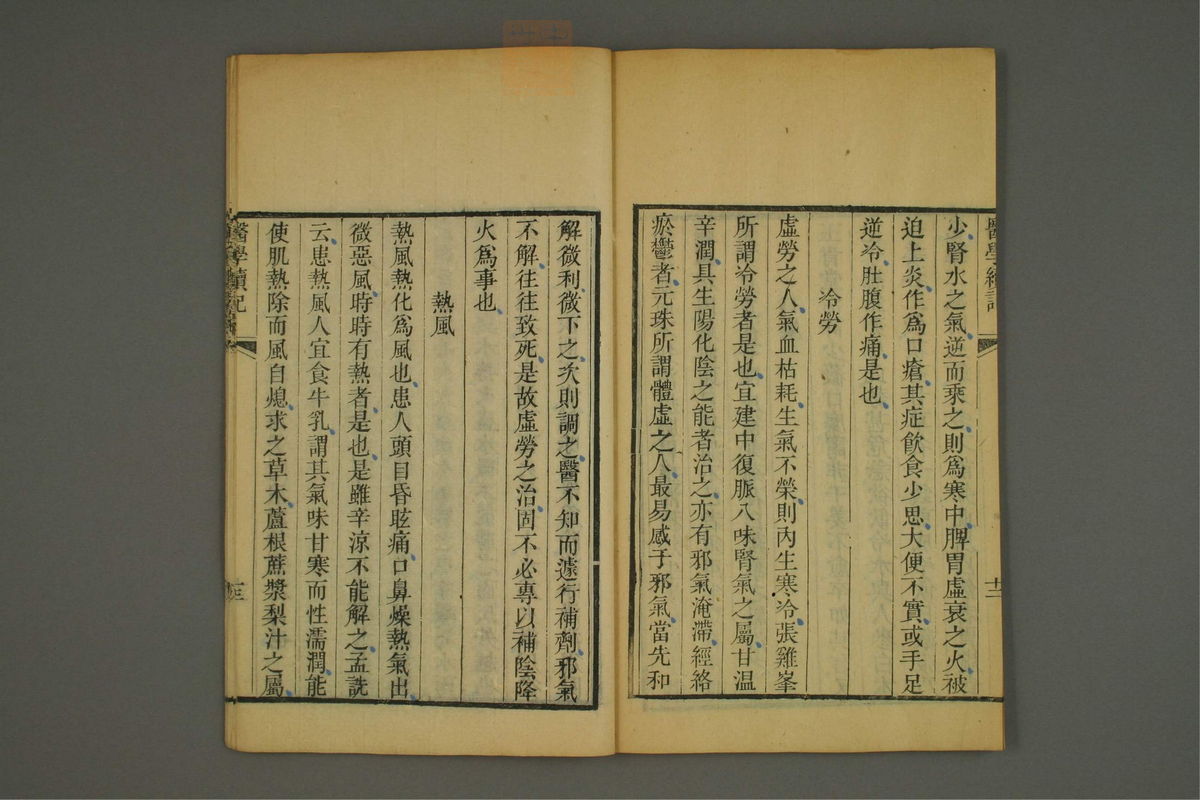 醫學續記
十二
少腎水之氣逆而乘之則爲寒中脾胃虛衰之火被
迫上炎作爲口瘡其症飲食少思大便不實或手足
逆冷肚腹作痛是也
冷勞
虛勞之人氣血枯耗生氣不榮則內生寒冷張雞峯
所謂冷勞者是也宜建中復脈八味腎氣之屬甘温
辛潤具生陽化陰之能者治之亦有邪氣淹滯經絡
瘀鬱者元珠所謂體虛之人最易感于邪氣當先和
解微利微下之次則調之醫不知而遽行補劑邪氣
不解往往致死是故虛勞之治固不必專以補陰降
火爲事也
熱風
熱風熱化爲風也患人頭目昏眩痛口鼻燥熱氣出
微惡風時時有熱者是也是雖辛涼不能解之孟詵
云患熱風人宜食牛乳謂其氣味甘寒而性濡潤能
使肌熱除而風自熄求之草木蘆根蔗漿梨汁之屬
醫學續記
十三